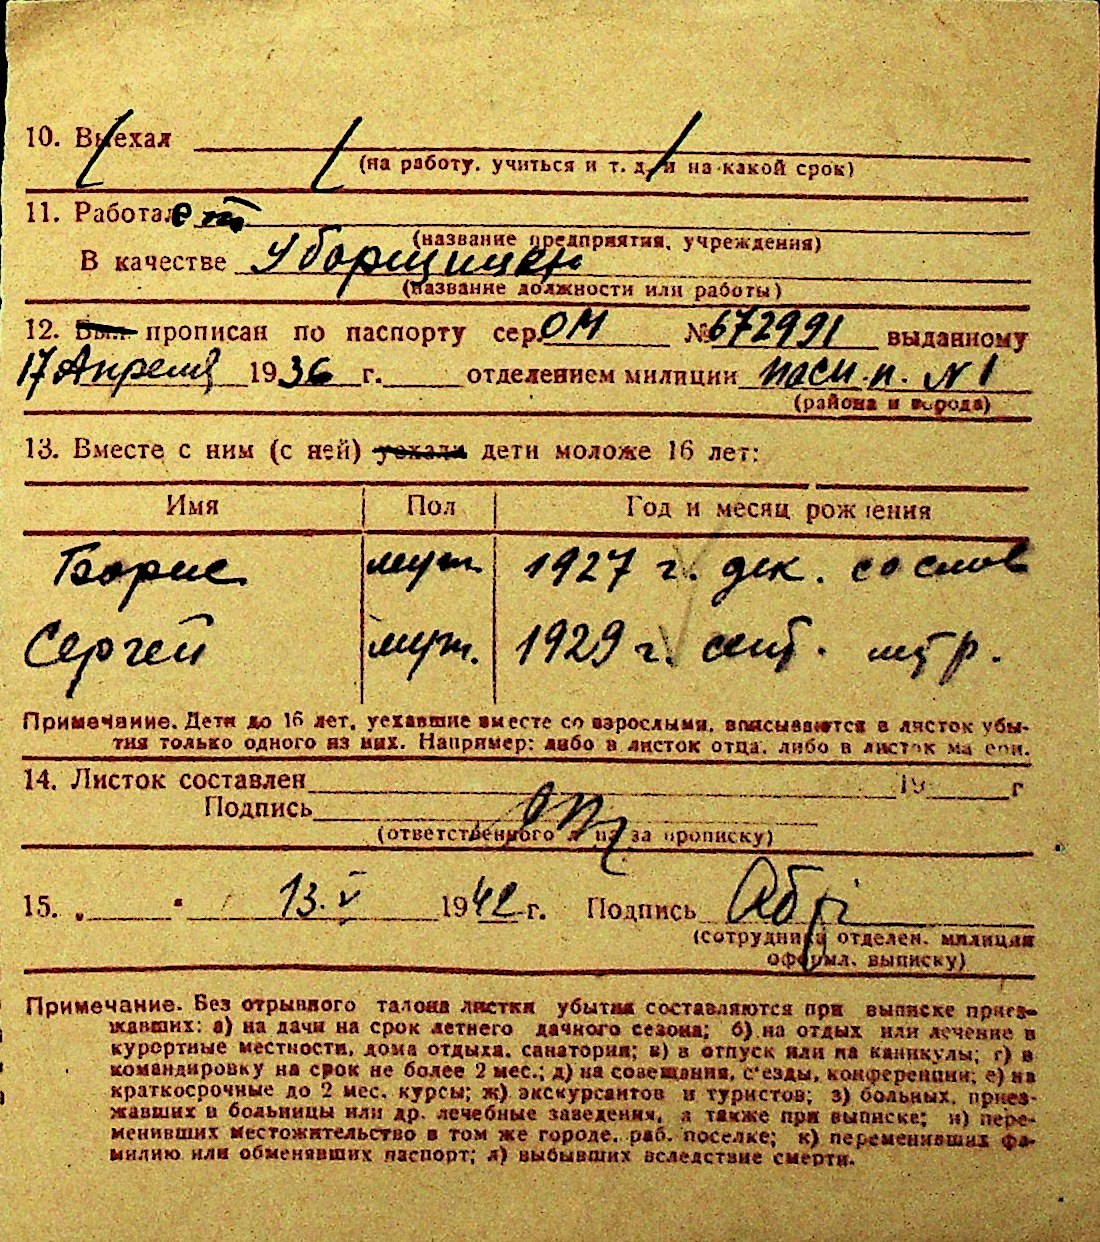 10. Выехал
(на работу, учиться и т. д. и на какой срок)
11. Работает
(название предприятия, учреждения)
В качестве уборщицы
(название должности или работы)
12. Был прописан по паспорту сер. ОМ № 672991 выданному
17 Апреля 1936 г. отделением милиции пасп. п. N 1
(района и города)
13. Вместе с ним (с ней) уехали дети моложе 16 лет:
Имя Пол Год и месяц рождения
Борис муж. 1927 г. дек. со слов
Сергей муж. 1929 г. сент. мтр.
Примечание. Дети до 16 лет, уехавшие вместе со взрослыми, вписываются в листок убы-
тия только одного из них. Например: либо в листок отца, либо в листок матери.
14. Листок составлен 19 г
Подпись
(ответственного лица за прописку)
15. „ " 13.V 1942 г. Подпись
(сотрудника отделен. милиции
оформл. выписку)
Примечание. Без отрывного талона листки убытия составляются при выписке приез-
жавших: а) на дачи на срок летнего дачного сезона; б) на отдых или лечение в
курортные местности, дома отдыха, санатории; в) в отпуск или на каникулы; г) в
командировку на срок не более 2 мес.; д) на совещания, с'езды, конференции; е) на
краткосрочные до 2 мес. курсы; ж) экскурсантов и туристов; з) больных, приез-
жавших в больницы или др. лечебные заведения, а также при выписке; и) пере-
менивших местожительство в том же городе, раб. поселке; к) переменивших фа-
милию или обменявших паспорт; л) выбывших вследствие смерти.